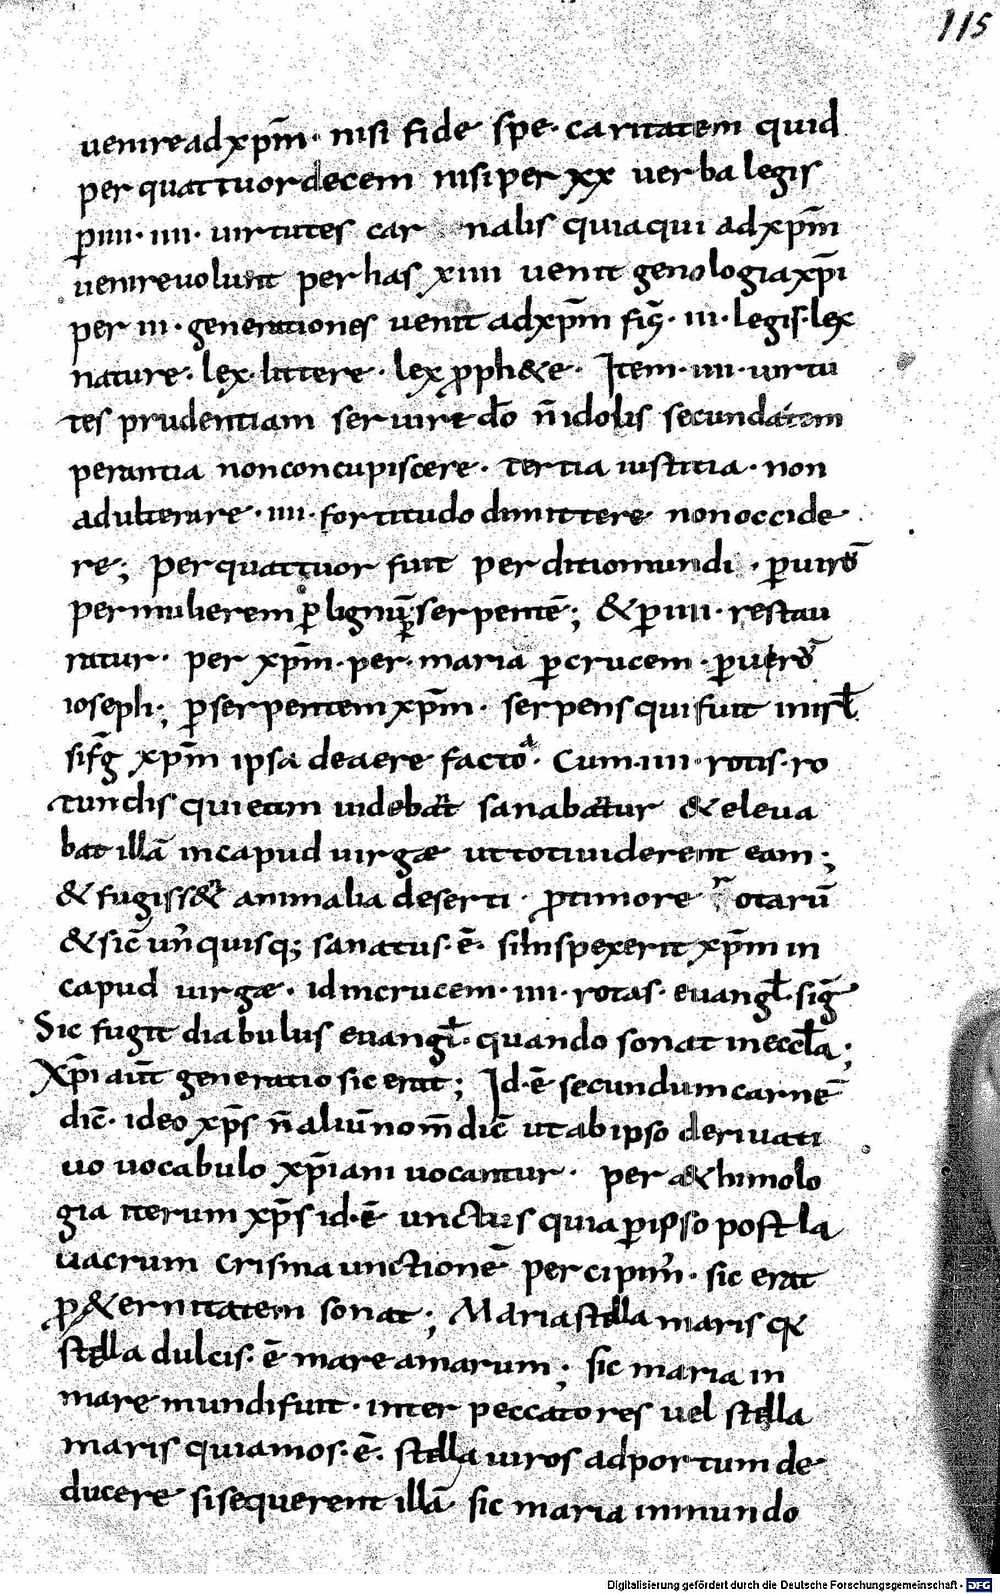 115
uenire ad xp̄m · nisi fide spe · caritatem quid
per quattuordecem nisi per xx uerba legis
p̲ iiii · iiii · uirtutes car nalis quia qui ad xp̄m
uenire uolunt per has xiiii uenit genologia xp̄i
per iii · generationes uenit ad xp̄m · iii · legis · lex
nature · lex · littere · lex p̲ph&e · Item · iiii · uirtu
tes prudentiam seruire dō n̄ idolis secunda tem
perantia non concupiscere · tertia iustitia · non
adulterare · iiii · fortitudo dimittere non occide
re ; per quattuor fuit perditio mundi · p̲ uirū
per mulierem p̲ lignū p̲ serpentē ; & p̲ iiii · restau
ratur · per xp̄m · per · maria p̲ crucem · p̲ uerō
ioseph ; p̲ serpentem xp̄m · serpens qui fuit in isrł
sifḡ xp̄m ipsa de aere facta · Cum · iiii · rotis · ro
tundis qui eum uidebat sanabatur & eleua
bat illā in capud uirgæ ut toti uiderent eam ;
& fugiss& animalia deserti · p̲ timore rotarū
& sic̄ un̄ quisq; sanatus · ē · si inspexerit xp̄m in
capud uirgæ · id in crucem · iiii · rotas · euangł · siḡ
Sic fugit diabulus euangł · quando sonat in eccła ;
Xp̄i aūt generatio sic erat ; Id · ē secundum carnē
dic̄ · ideo xp̄s n̄ aliū nom̄ dic̄ ut ab ipso deriuati
uo uocabulo xp̄iani uocantur · per &himolo
gia iterum xp̄s id · ē unctus quia p̲ ipso post la
uacrum crisma unctionē percipim̄ · sic erat
p̲ &ernitatem sonat ; Maria stella maris
stella dulcis · ē mare amarum ; sic maria in
mare mundi fuit · inter peccatores uel stella
maris quia mos · ē · stella uiros ad portum de
ducere si sequerent illā sic maria in mundo
Digitalisierung gefördert durch die Deutsche Forschungsgemeinschaft - DFG